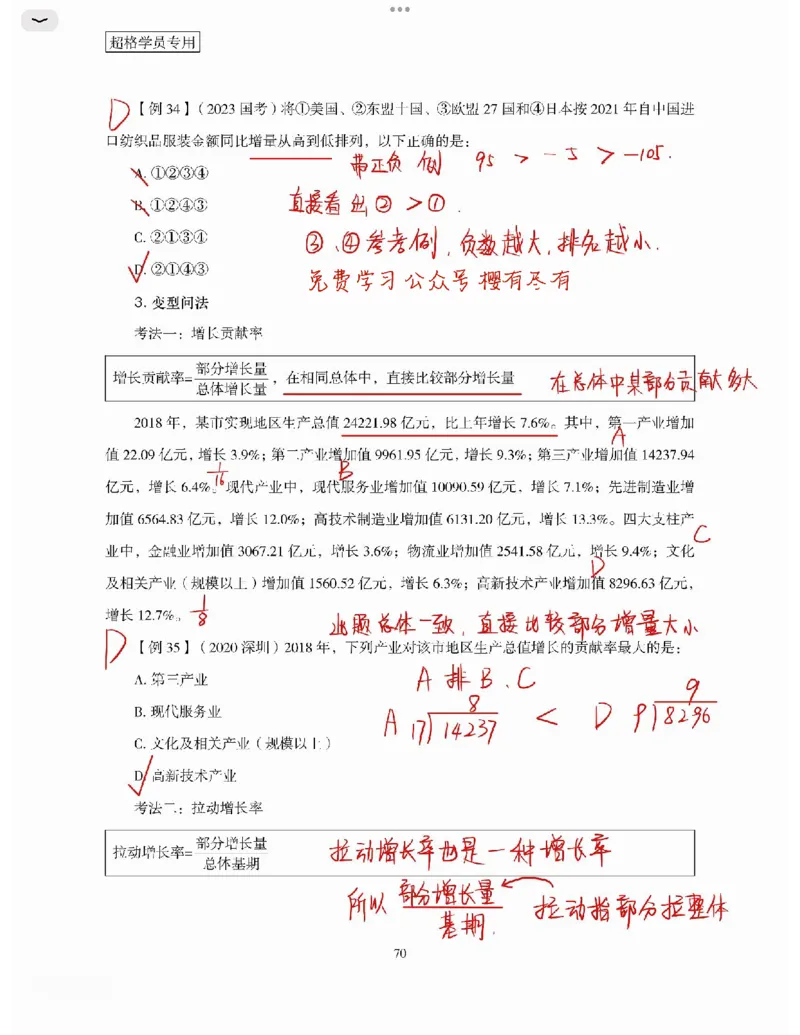 超格学员专用
D【例 34】（2023 国考）将①美国、②东盟十国、③欧盟 27 国和④日本按 2021 年自中国进
口纺织品服装金额同比增量从高到低排列，以下正确的是：
带正负 例 95 > -5 > -105.
A. ①②③④
B. ①②④③
直接看出② >①.
C. ②①③④
③、④参考例，负数越大，排名越小.
D. ②①④③
免费学习公众号樱有尽有
3. 变型问法
考法一：增长贡献率
增长贡献率=部分增长量/总体增长量，在相同总体中，直接比较部分增长量
在总体中某部分贡献多大
2018 年，某市实现地区生产总值 24221.98 亿元，比上年增长 7.6%。其中，第一产业增加
A
值 22.09 亿元，增长 3.9%；第二产业增加值 9961.95 亿元，增长 9.3%；第三产业增加值 14237.94
1/16 B
亿元，增长 6.4%。现代产业中，现代服务业增加值 10090.59 亿元，增长 7.1%；先进制造业增
加值 6564.83 亿元，增长 12.0%；高技术制造业增加值 6131.20 亿元，增长 13.3%。四大支柱产
C
业中，金融业增加值 3067.21 亿元，增长 3.6%；物流业增加值 2541.58 亿元，增长 9.4%；文化
D
及相关产业（规模以上）增加值 1560.52 亿元，增长 6.3%；高新技术产业增加值 8296.63 亿元，
增长 12.7%。1/8
此题总体一致，直接比较部分增量大小
D【例 35】（2020 深圳）2018 年，下列产业对该市地区生产总值增长的贡献率最大的是：
A. 第三产业
A 排 B、C
B. 现代服务业
8 9
A 17)14237 < D 9)8296
C. 文化及相关产业（规模以上）
D. 高新技术产业
考法二：拉动增长率
拉动增长率=部分增长量/总体基期
拉动增长率也是一种增长率
所以 部分增长量/基期.
拉动指部分拉整体
70